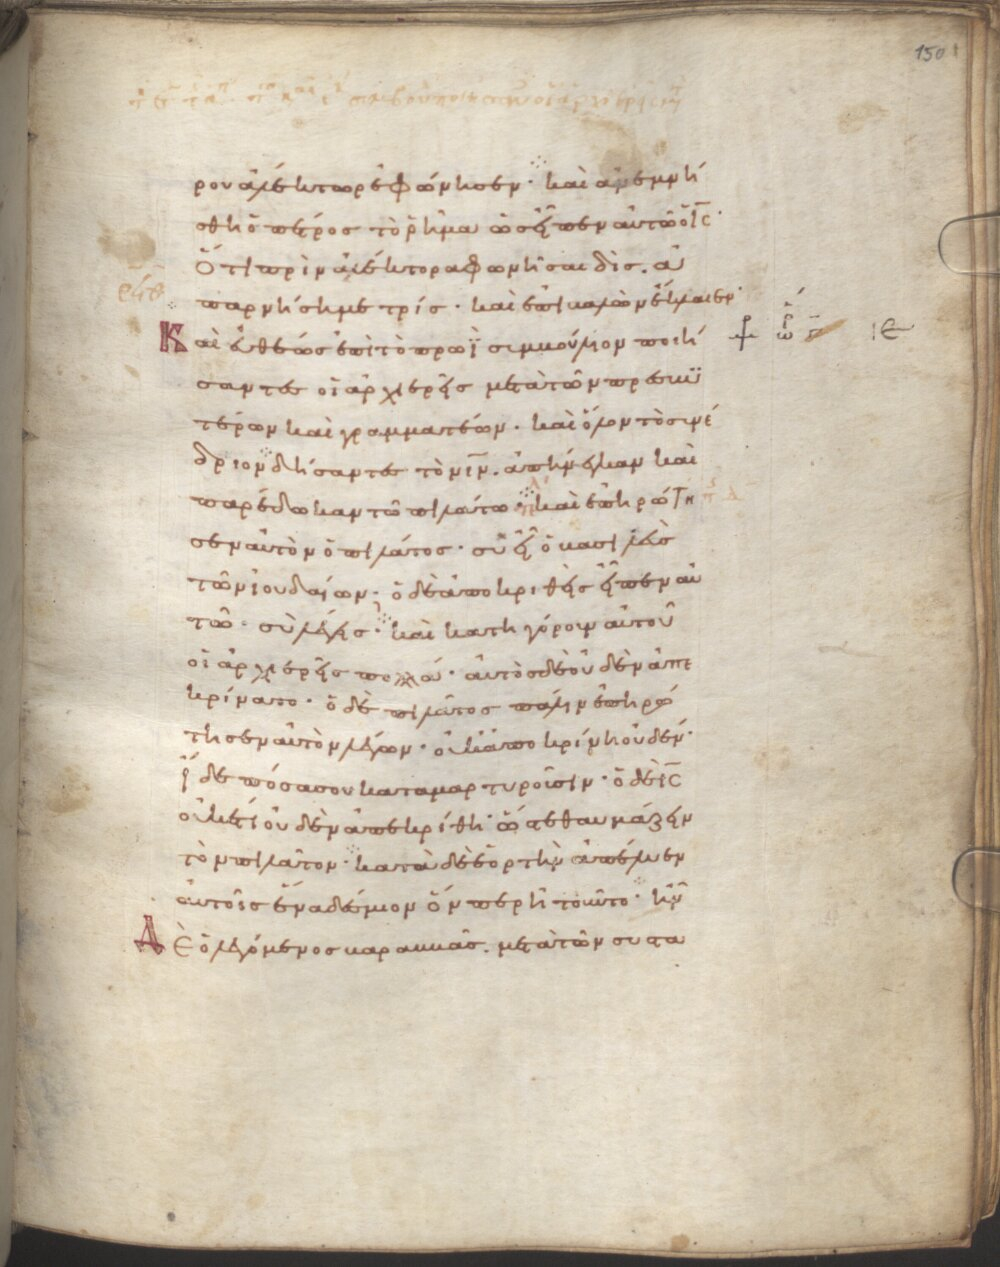 150
ρον ἀλέκτωρ ἐφώνησεν· καὶ ἀνεμνή
σθη ὁ πέτρος τὸ ῥῆμα ὡς εἶπεν αὐτῶ ὁ ις·
Ὅτι πρὶν ἀλέκτορα φωνῆσαι δὶς. ἀ
παρνήση με τρίς· καὶ ἐπιβαλὼν ἔκλαιεν·
Καὶ εὐθέως ἐπὶ τὸ πρωῒ συμβούλιον ποιή
σαντες οἱ ἀρχιερεῖς μετὰ τῶν πρεσβυ
τέρων καὶ γραμματέων· καὶ ὅλον τὸ συνέ
δριον δήσαντες τὸν ιν. ἀπήνεγκαν καὶ
παρέδωκαν τῶ πιλάτω· καὶ ἐπηρώτη
σεν αὐτὸν ὁ πιλάτος· σὺ εἶ ὁ βασιλεὺς
τῶν ἰουδαίων· ὁ δὲ ἀποκριθεὶς εἶπεν αὐ
τῶ· σὺ λέγεις· καὶ κατηγόρουν αὐτοῦ
οἱ ἀρχιερεῖς πολλά· αὐτὸς δὲ οὐδὲν ἀπε
κρίνατο· ὁ δὲ πιλάτος πάλιν ἐπηρώ
τησεν αὐτὸν λέγων· οὐκ ἀποκρίνη οὐδέν·
ἴδε πόσα σου καταμαρτυροῦσιν· ὁ δὲ ις
οὐκέτι οὐδὲν ἀπεκρίθη· ὥστε θαυμάζειν
τὸν πιλᾶτον· κατὰ δὲ ἑορτὴν ἀπέλυεν
αὐτοῖς ἕνα δέσμιον ὅνπερ ἠτοῦντο· ἦν
Δὲ ὁ λεγόμενος βαραββᾶς. μετὰ τῶν συστα